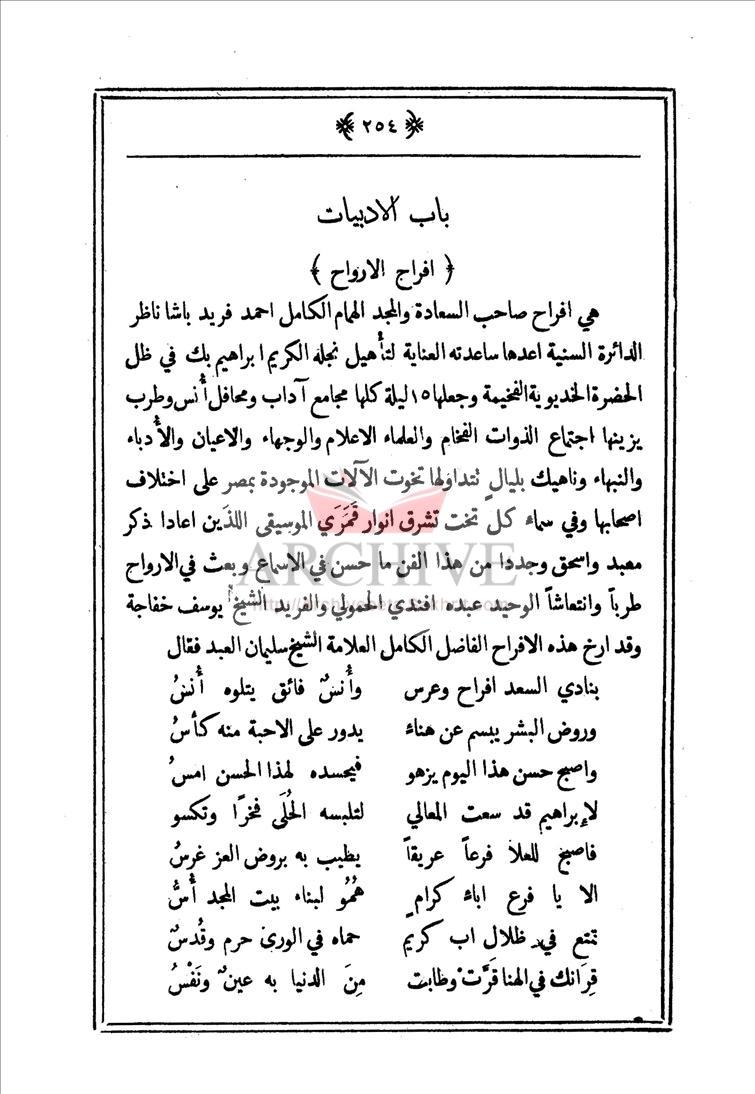 ﴿ ٢٥٤ ﴾
باب الادبيات
﴿ افراح الارواح ﴾
هي افراح صاحب السعادة والمجد الهمام الكامل احمد فريد باشا ناظر
الدائرة السنية اعدها ساعدته العناية لتأهيل نجله الكريم ابراهيم بك في ظل
الحضرة الخديوية الفخيمة وجعلها ١٥ ليلة كلها مجامع آداب ومحافل أُنس وطرب
يزينها اجتماع الذوات الفخام والعلماء الاعلام والوجهاء والاعيان والأُدباء
والنبهاء وناهيك بليالٍ تتداولها تخوت الآلات الموجودة بمصر على اختلاف
اصحابها وفي سماء كل تخت تشرق انوار قَمَرَي الموسيقى اللذَين اعادا ذكر
معبد واسحق وجددا من هذا الفن ما حسن في الاسماع وبعث في الارواح
طرباً وانتعاشاً الوحيد عبده افندي الحمولي والفريد الشيخ يوسف خفاجة
وقد ارخ هذه الافراح الفاضل الكامل العلامة الشيخ سليمان العبد فقال
بنادي السعد افراح وعرس وأُنسٌ فائق يتلوه أُنسُ
وروض البشر يبسم عن هناء يدور على الاحبة منه كأسُ
واصبح حسن هذا اليوم يزهو فيحسده لهذا الحسن امسُ
لإبراهيم قد سعت المعالي لتلبسه الحُلَى فخرًا وتكسو
فاصبح للعلا فرعاً عريقاً يطيب به بروض العز غرسُ
الا يا فرع اباء كرامٍ هُمُو لبناء بيت المجد أُسُّ
تمتع في ظلال اب كريم حماه في الورى حرم وقُدسٌ
قِرَانك في الهنا قَرَّتْ وطابت مِنَ الدنيا به عينٌ ونَفْسُ
ARCHIVE